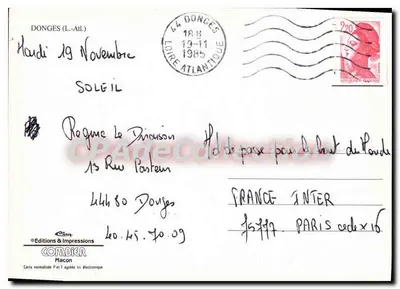 DONGES (L.-Atl.)
44 DONGES
18 H
19-11
1985
LOIRE ATLANTIQUE
2,20
Mardi 19 Novembre
SOLEIL
Regine Le
13 Rue Pasteur
44480 Donges
40.45.70.09
Mot de passe pour le bout du Monde
FRANCE INTER
75777 PARIS cedex 16
© Editions & Impressions
COMBIER
Macon
Carte normalisée P et T agréée tri électronique